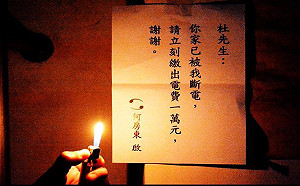 杜先生：
你家已被我斷電，
請立刻繳出電費一萬元，
謝謝。
何房東 啟